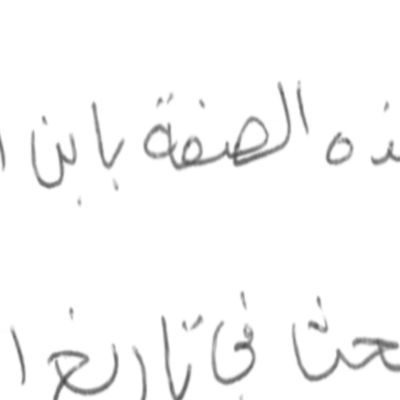 ذه الصفة بابن ا
حث في تاريخ ا